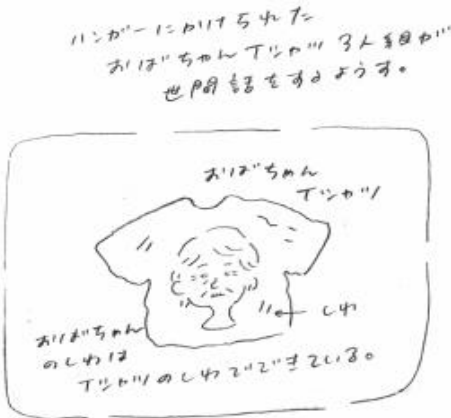 ハンガーにかけられた
おばちゃんTシャツ3人組が
世間話をするようす。
おばちゃん
Tシャツ
しわ
おばちゃん
のしわは
Tシャツのしわでできている。